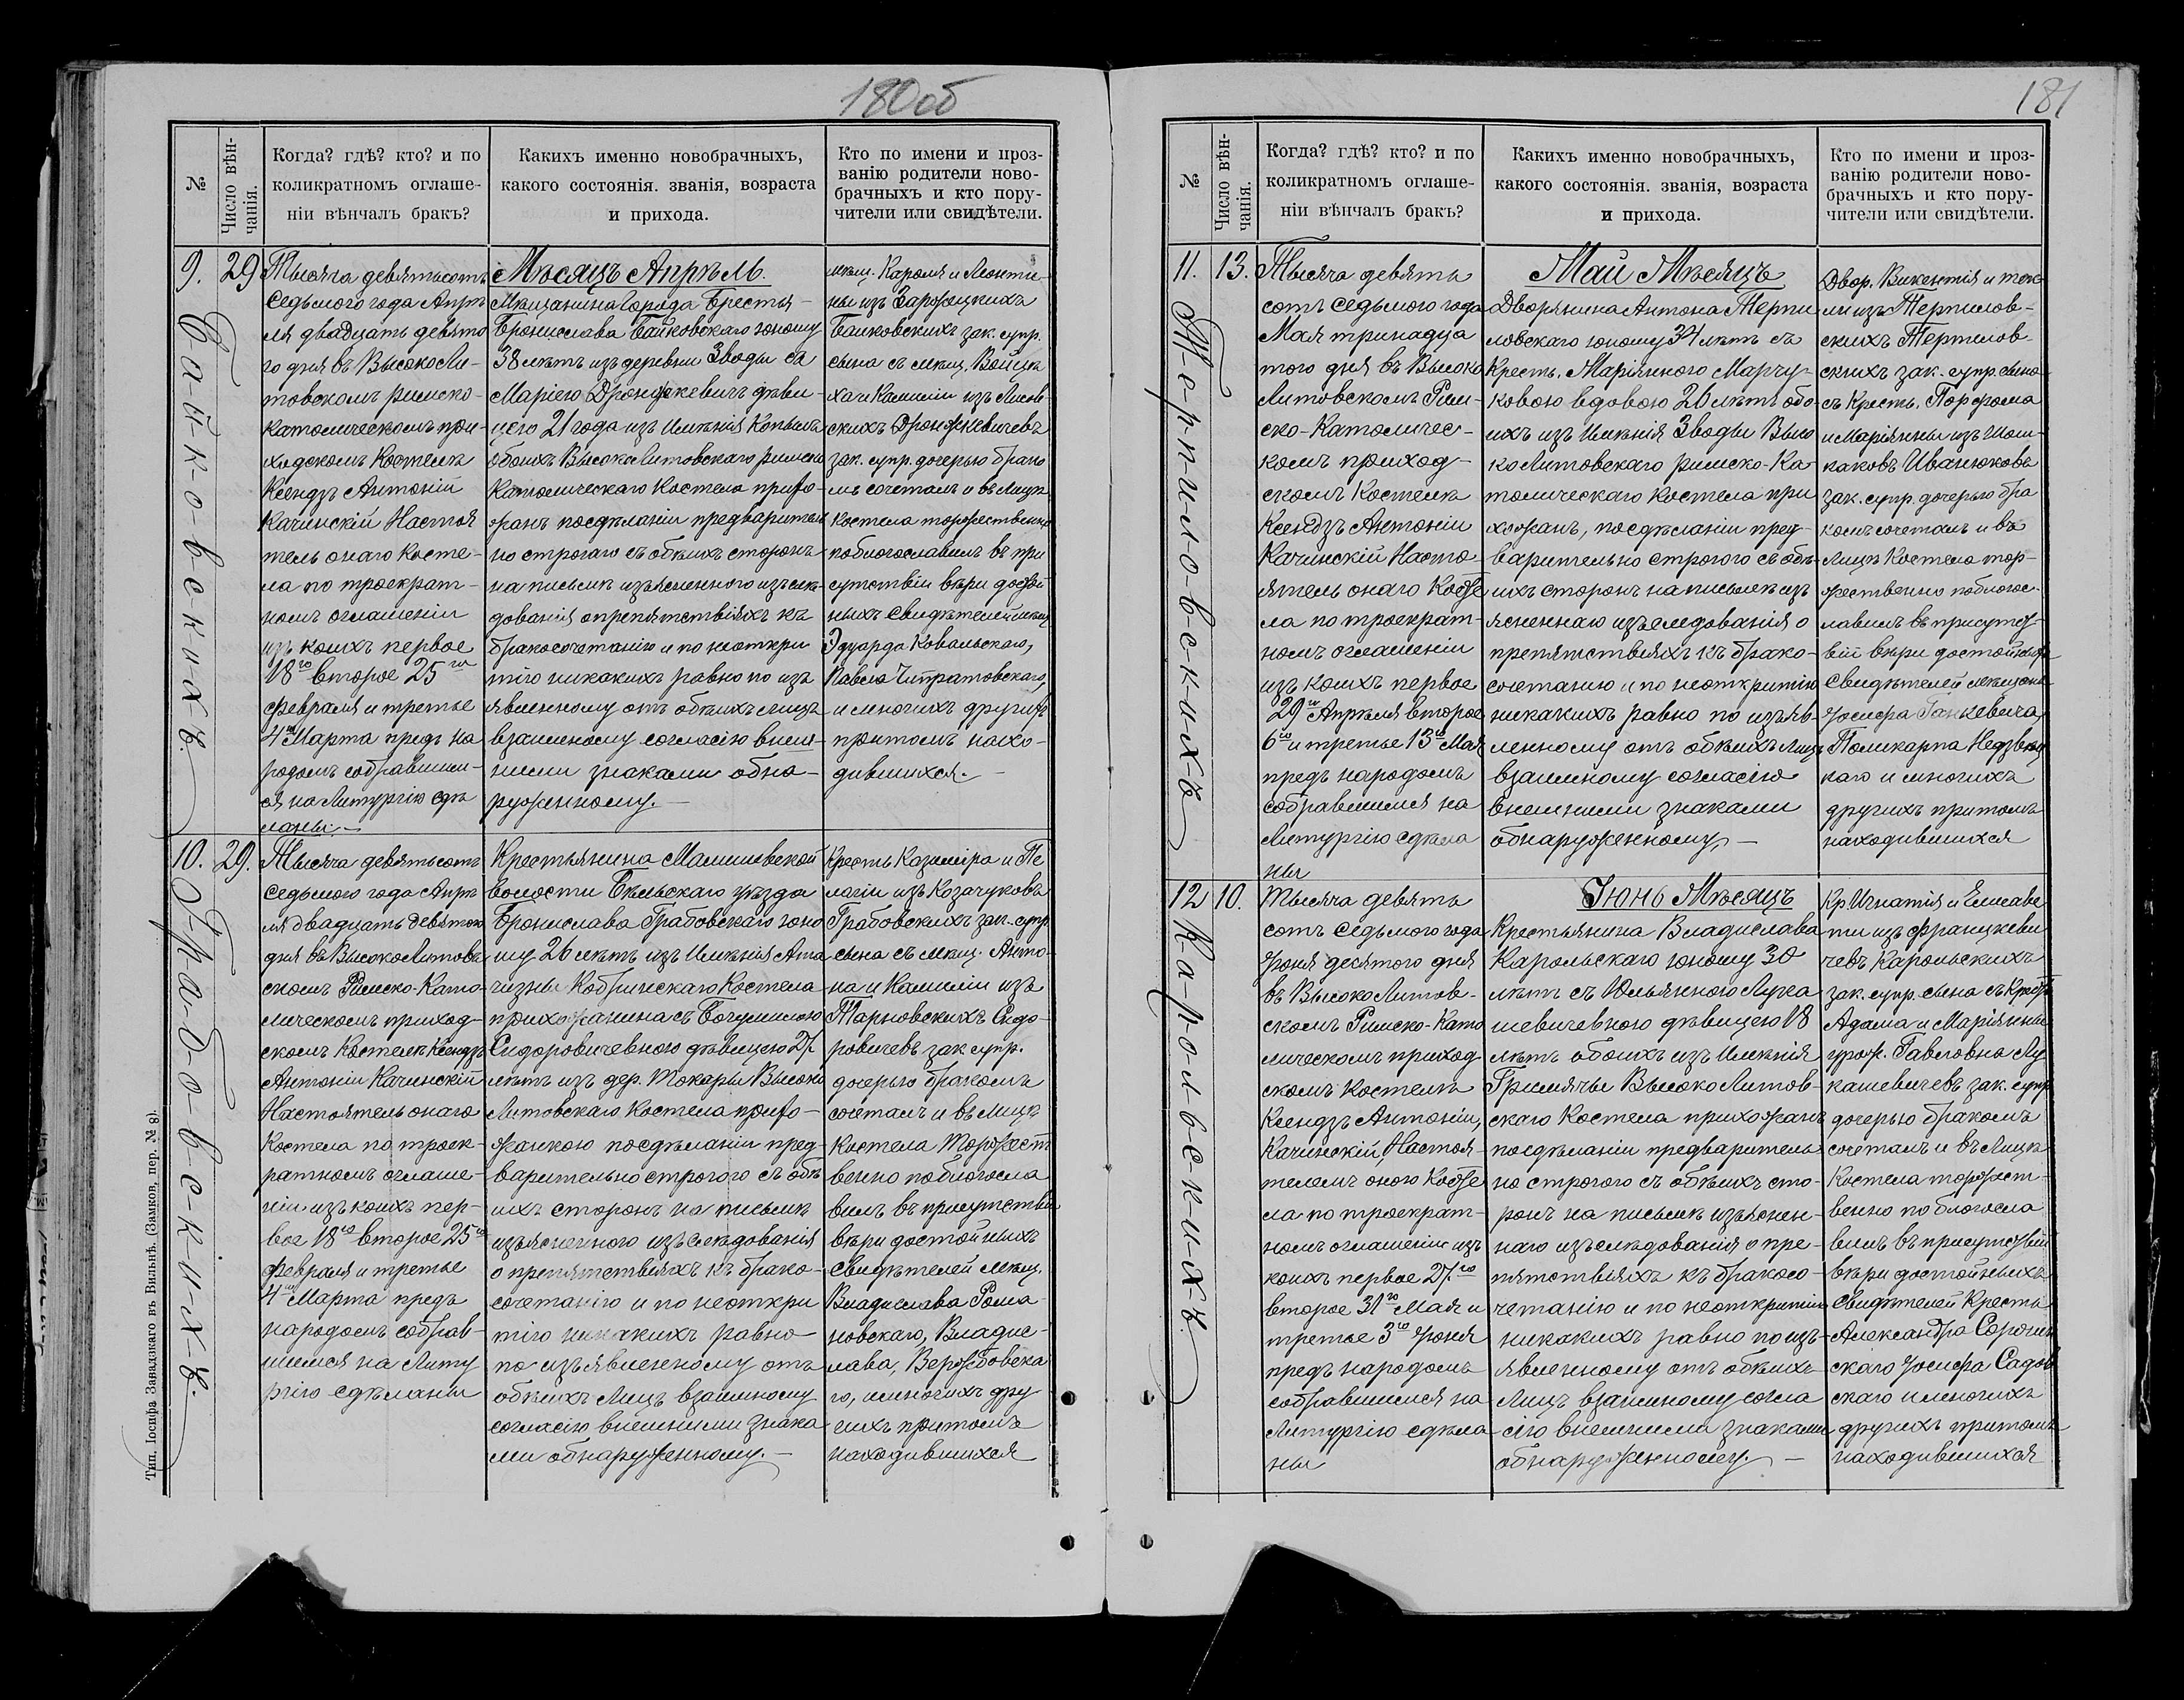 180об
№
Число вѣн-
чанія.
Когда? гдѣ? кто? и по
коликратномъ оглаше-
ніи вѣнчалъ бракъ?
Какихъ именно новобрачныхъ,
какого состоянія. званія, возраста
и прихода.
Кто по имени и проз-
ванію родители ново-
брачныхъ и кто пору-
чители или свидѣтели.
9.
29
Байковскихъ.
Тысяча девятьсотъ
седьмого года Апрѣ
ля двадцать девято
го дня въ Высоко Ли-
товскомъ римско-
католическомъ при-
ходскомъ Костелѣ
Ксендзъ Антоній
Качинскій Настоя
тель онаго Косте-
ла по троекрат-
номъ оглашеніи
изъ коихъ первое
18го второе 25го
февраля и третье
4го Марта предъ на
родомъ собравшим-
ся на Литургію сдѣ
ланы.
Мѣсяцъ Апрѣль.
Мѣщанина города Бреста
Бронислава Байковскаго юношу
38 лѣтъ изъ деревни Зводы съ
Маріею Дронжкевичъ дѣви-
цею 21 года изъ имѣнія Копылы
обоихъ ВысокоЛитовскаго римско
Католическаго Костела прихо-
жанъ посдѣланіи предваритель
но строгаго съ обѣихъ сторонъ
на письмѣ изъясненного изслѣ-
дованія опрепятствіяхъ къ
бракосочетанію и по неоткри
тію никакихъ равно по изъ
явленному отъ обѣихъ лицъ
взаимному согласію внѣш-
ними знаками обна-
руженному.
мѣщ. Кароля и Леонти
ны изъ Зарожецкихъ
Байковскихъ зак. супр.
сына съ мѣщ. Войцѣ
ха и Камиліи изъ Лисов
скихъ Дронжкевичевъ
зак. супр. дочерью брако
мъ сочеталъ и въ лицѣ
костела торжественно
поблогославилъ въ при
сутствіи вѣри достой
ныхъ свидѣтелей мѣщ
Эдуарда Ковальскаго,
Павела Чипратовскаго,
и многихъ другихъ
притомъ нахо-
дившихся.
10.
29.
Грабовскихъ.
Тысяча девятьсотъ
седьмого года Апрѣ
ля двадцать девятого
дня въ Высоко Литовъ
скомъ Римско-Като
лическомъ приход-
скомъ Костелѣ Ксендзъ
Антоніи Качинскій
Настоятель онаго
Костела по троек-
ратномъ оглаше-
ніи изъ коихъ пер-
вое 18го второе 25го
февраля и третье
4го Марта предъ
народомъ собрав-
шимся на Литу
ргію сдѣланы
Крестьянина Малишевской
волости Бѣльскаго уѣзда
Бронислава Грабовскаго юно
шу 26 лѣтъ изъ имѣнія Ата
чизны Кобринскаго Костела
прихожанина съ Богумилою
Сидоровичевною дѣвицею 27.
лѣтъ изъ дер. Токары Высоко
Литовскаго Костела прихо-
жанкою посдѣланіи пред-
варительно строгого съ обѣ
ихъ сторонъ на письмѣ
изъясненного изъслѣдованія
о препятствіяхъ къ брако-
сочетанію и по неоткри
тію никакихъ равно
по изъявленному отъ
обѣихъ лицъ взаимному
согласію внешними знака
ми обнаруженному.
Крестъ Казиміра и Пе
лагіи изъ Козачуковъ
Грабовскихъ зак. супр
сына съ мѣщ. Анто-
на и Камиліи изъ
Тарновскихъ Сидо-
ровичевъ зак супр.
дочерью бракомъ
сочеталъ и въ лицѣ
Костела торжест
венно поблогосла
вилъ въ присутствіи
вѣри достойныхъ
Свидѣтелей мѣщ.
Владислава Рома-
новскаго, Владис-
лава, Вержбовска
го, и многихъ дру
гихъ притомъ
находившихся
Тип. Іосифа Завадзкаго въ Вильнѣ. (Замков. пер. № 8).
181
№
Число вѣн-
чанія.
Когда? гдѣ? кто? и по
коликратномъ оглаше-
ніи вѣнчалъ бракъ?
Какихъ именно новобрачныхъ,
какого состоянія. званія, возраста
и прихода.
Кто по имени и проз-
ванію родители ново-
брачныхъ и кто пору-
чители или свидѣтели.
11.
13.
Терпиловскихъ
Тысяча девять
сотъ седьмого года
Мая тринадца
того дня въ Высоко
Литовскомъ Рим-
ско-Католичес-
комъ приход-
скомъ Костелѣ
Ксендзъ Антоніи
Качинскій Насто-
ятель онаго Косте
ла по троекрат-
номъ оглашеніи
изъ коихъ первое
29го Апрѣля второе
6го и третье 13го Мая
предъ народомъ
собравшимся на
Литургію сдѣла
ны
Май Мѣсяцъ
Дворянина Антона Терпи
ловскаго юношу 34 лѣтъ съ
Кресть. Маріянною Марчу-
ковою вдовою 26 лѣтъ обо-
ихъ изъ имѣнія Зводы Высо
ко Литовскаго римско-Ка
толическаго костела при
хожанъ, посдѣланіи пред-
варительно строгого съ обѣ-
ихъ сторонъ на письмѣ изъ
ясненнаго изъследованія о
препятствіяхъ къ брако-
сочетанію и по неоткритію
никакихъ равно по изъяв-
ленному отъ обѣихъ лицъ
взаимному согласію
внешними знаками
обнаруженному.
Двор. Викентія и тек-
ли изъ Терпилов-
скихъ Терпилов-
скихъ зак. супр. сына
съ Кресть. Порфома
и Маріянны изъ Шош-
каковъ Иванюковъ
зак. супр. дочерью бра
комъ сочеталъ и въ
лицѣ Костела тор-
жественно поблогос-
лавилъ въ присутст-
віи вѣри достойныхъ
Свидѣтелей мѣщанъ
Іосифа Ганкевича,
Поликарпа Недзвец
каго и многихъ
другихъ притомъ
находившихся
12
10.
Карольскихъ.
Тысяча девять
сотъ седьмого года
Іюня десятого дня
въ Высоко Литов-
скомъ Римско-Като
лическомъ приход
скомъ костелѣ
Ксендзъ Антоніи,
Качинскій, Настоя-
телемъ оного Косте
ла по троекрат-
номъ оглашеніи изъ
коихъ первое 27.го
второе 31го Мая и
третье 3го Іюня
предъ народомъ
собравшимся на
Литургію сдѣла
ны
Іюнь Мѣсяцъ
Крестьянина Владислава
Карольскаго юношу 30
лѣтъ съ Юльянною Лука
шевичевною дѣвицею 18
лѣтъ обоихъ изъ имѣнія
Гримячы Высоко Литов-
скаго Костела прихожанъ
посдѣланіи предваритель
но строгого съ обѣихъ сто-
ронъ на письмѣ изъяснен-
наго изъслѣдованія о пре-
пятствіяхъ къ бракосо-
четанію и по неоткритію
никакихъ равно по изъ-
явленному отъ обѣихъ
лицъ взаимному согла
сію внешними знаками
обнаруженному.
Кр. Игнатія и Елисаве
ти изъ Францкеви
чевъ Карольскихъ
зак. супр. сына съ Кресть
Адама и Маріянны
урож. Гавловна Лу
кашевичевъ зак. супр
дочерью бракомъ
сочеталъ и въ лицѣ
Костела торжест-
венно поблогосла
вилъ въ присутствіи
вѣри достойныхъ
Свидѣтелей Кресть
Александра Сорочин
скаго Іосифа Садов
скаго и многихъ
другихъ притомъ
находившихся